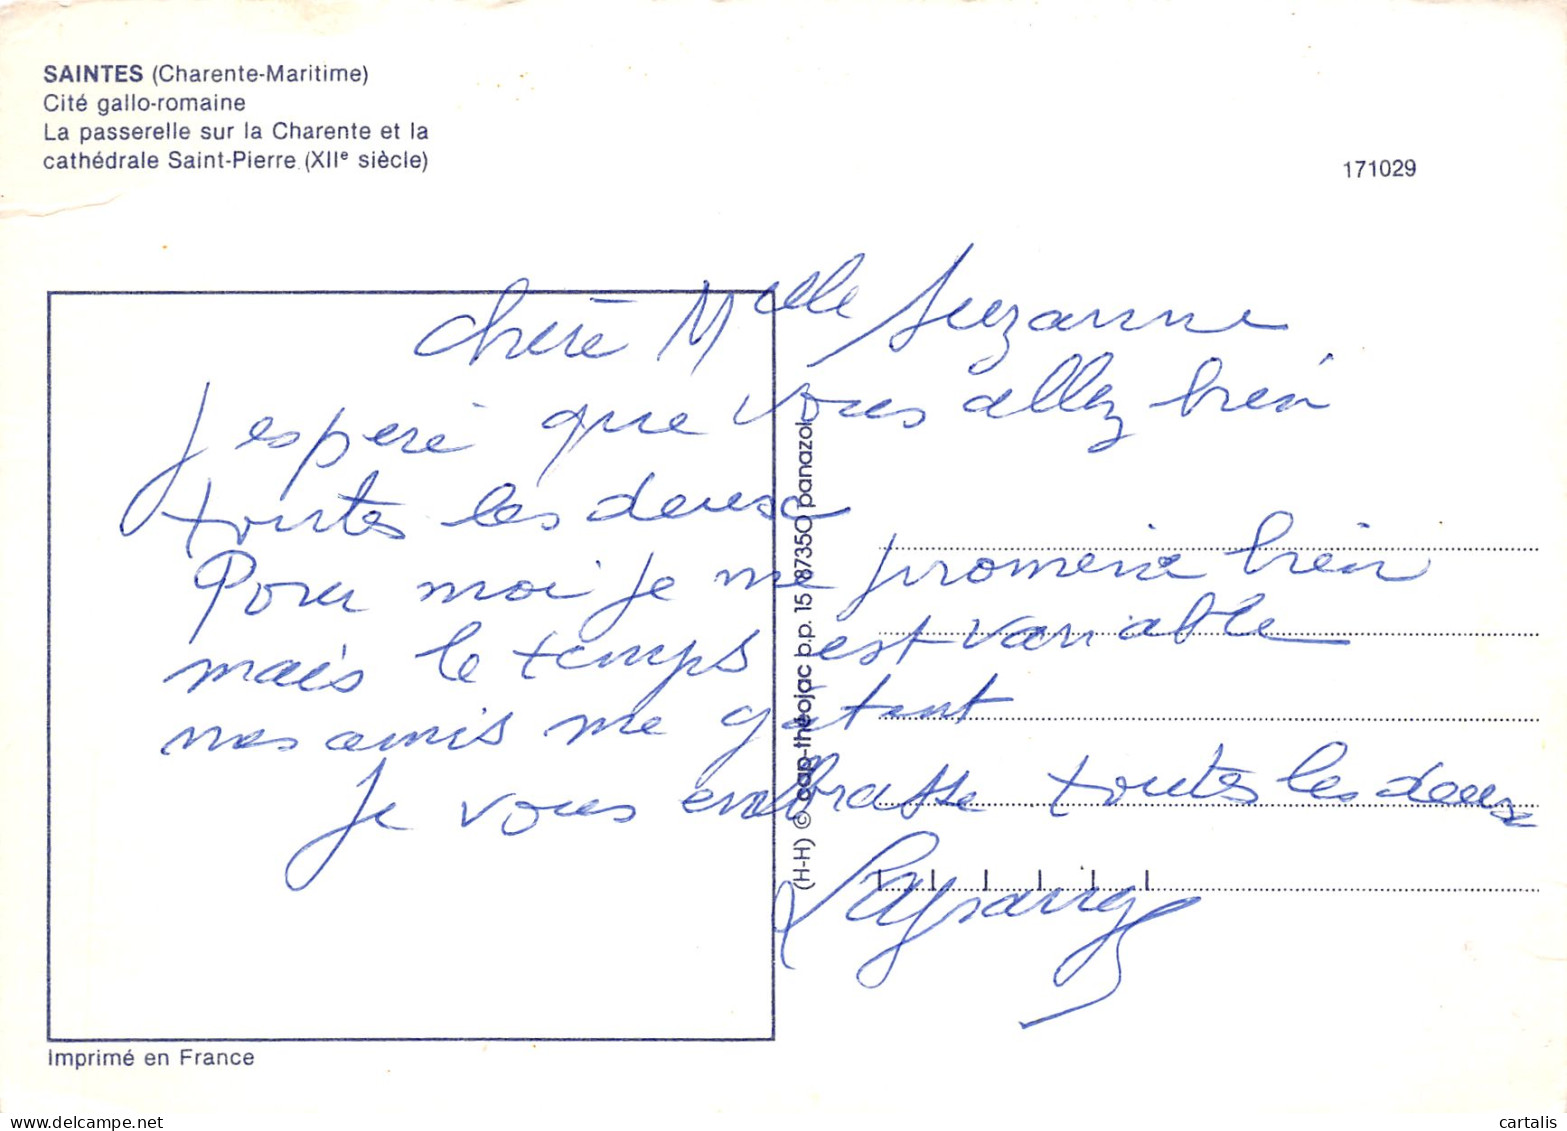 SAINTES (Charente-Maritime)
Cité gallo-romaine
La passerelle sur la Charente et la
cathédrale Saint-Pierre (XIIe siècle)
171029
chère Melle Suzanne
J espere que vous allez bien
toutes les deux
Pour moi je me promène bien
mais le temps est variable
nos amis me gatent
Je vous embrasse toutes les deux
(H-H) © cap-théojac b.p. 15 87350 panazol
Imprimé en France
www.delcampe.net
cartalis